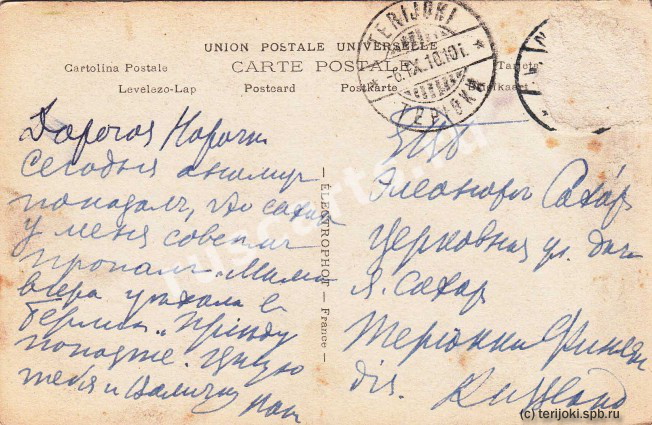 UNION POSTALE UNIVERSELLE
CARTE POSTALE
Cartolina Postale
Tarjeta
Levelezo-Lap Postcard Postkarte Briefkaart
TERIJOKI
-6.IX.10.10 i.
ТЕРІОКИ
Дорогая
Сегодня
попадал, что
у меня совсем
пропал. Мама
вчера уехала в
Берлин. Приеду
попозже. Цалую
тебя и Валичку
ÉLECTROPHOT — France —
Элеоноре Сахар
Церковная ул. дача
Я. Сахар
Териоки Финлян
dia. Russland
ruscarta.ru
(c) terijoki.spb.ru